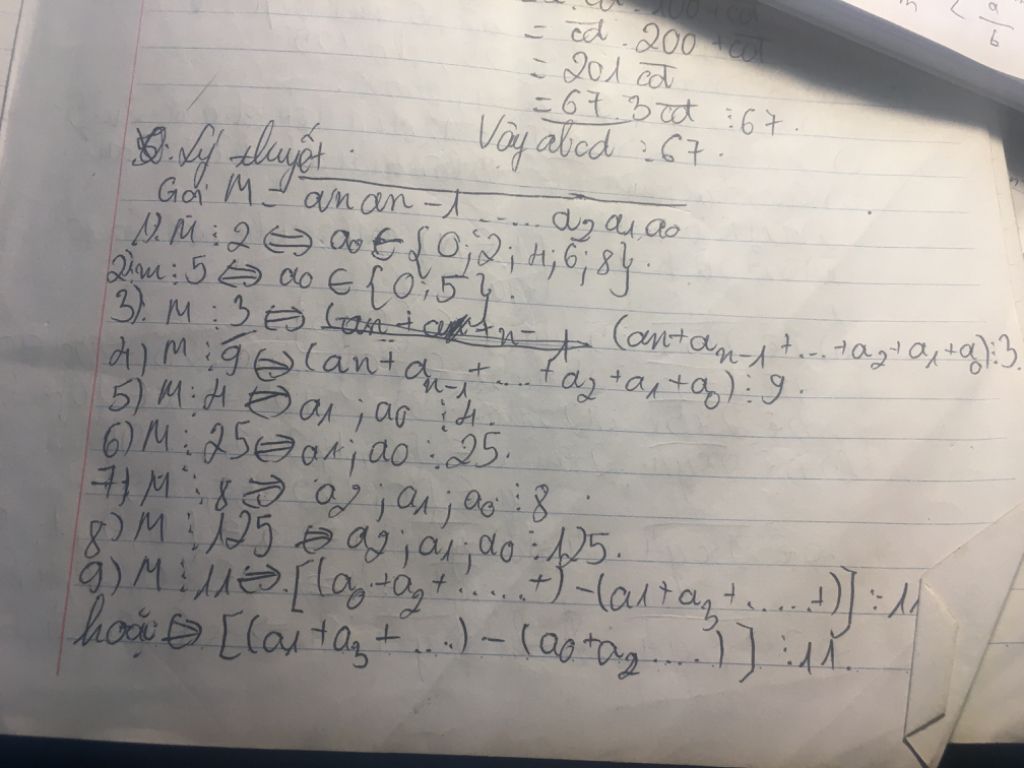 = cd . 200 + cd
= 201 cd
= 67 . 3cd ⋮ 67 .
Vậy abcd ⋮ 67 .
Lý thuyết .
Gọi M = an an-1 .... a2 a1 a0
1). M ⋮ 2 ⇔ a0 ∈ {0; 2; 4; 6; 8}.
2) m ⋮ 5 ⇔ a0 ∈ {0; 5}.
3). M ⋮ 3 ⇔ (an + an-1 + ... + a2 + a1 + a0) ⋮ 3.
4) M ⋮ 9 ⇔ (an + an-1 + ... + a2 + a1 + a0) ⋮ 9.
5) M ⋮ 4 ⇔ a1 ; a0 ⋮ 4.
6) M ⋮ 25 ⇔ a1 ; a0 ⋮ 25.
7) M ⋮ 8 ⇔ a2 ; a1 ; a0 ⋮ 8 .
8) M ⋮ 125 ⇔ a2 ; a1 ; a0 ⋮ 125.
9) M ⋮ 11 ⇔ [(a0 + a2 + ..... +) - (a1 + a3 + ..... +)] ⋮ 11
hoặc ⇔ [(a1 + a3 + ....) - (a0 + a2 ....)] ⋮ 11.